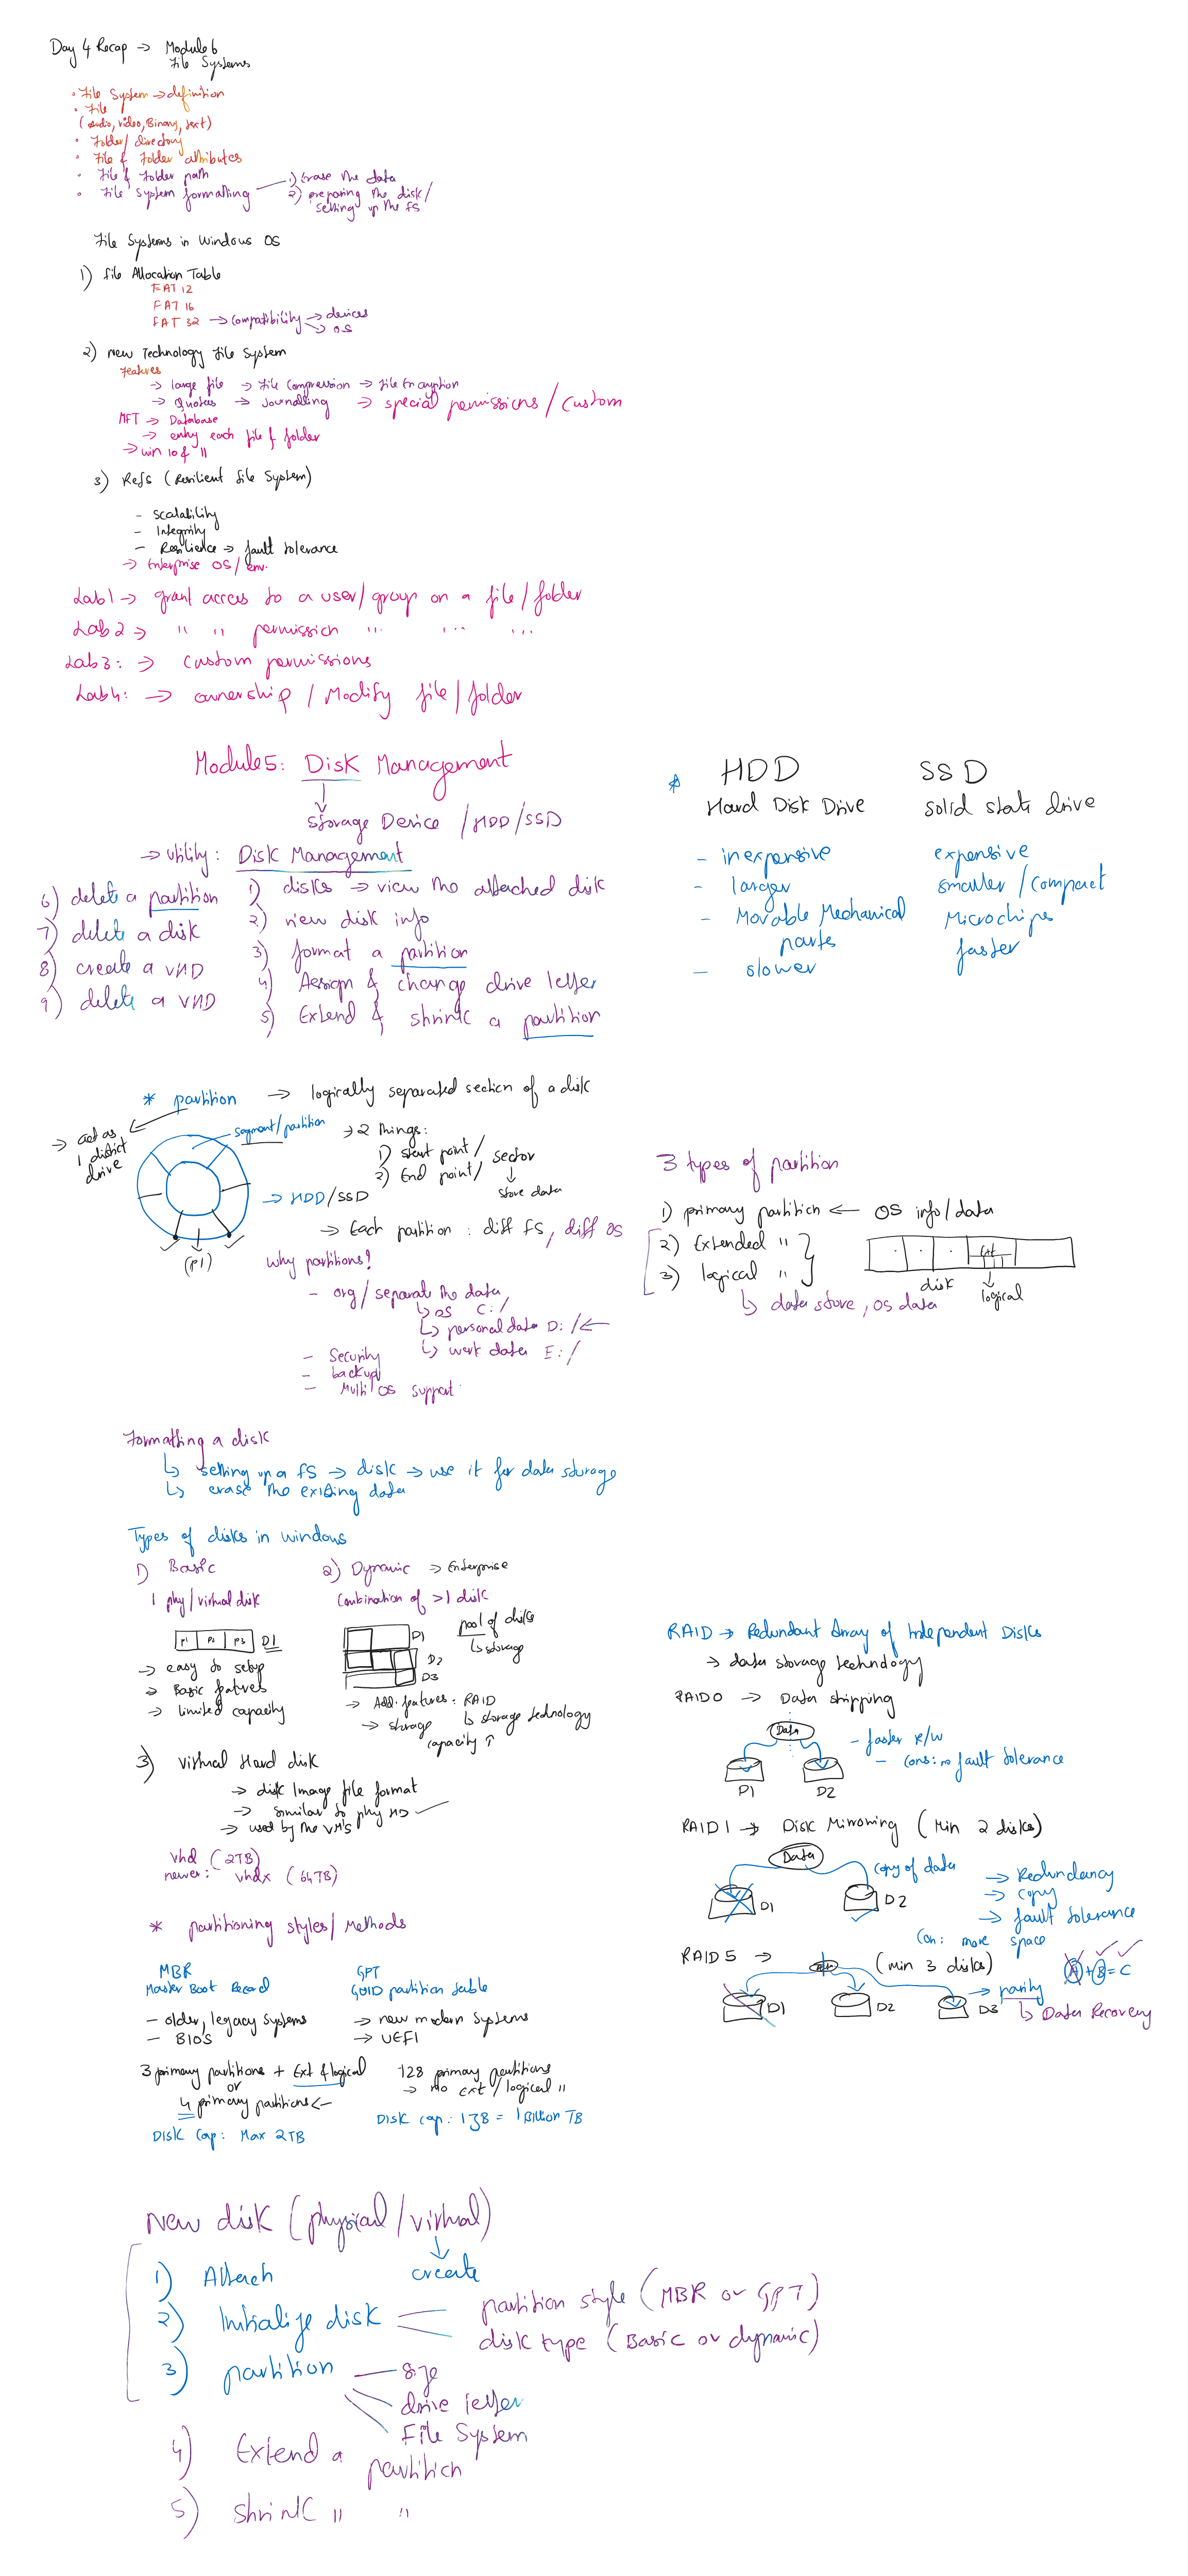 Day 4 Recap → Module 6
File Systems
• File System → definition
• File
(audio, video, Binary, text)
• Folder/directory
• File & Folder attributes
• File & Folder path
• File System formatting
1) Erase the data
2) preparing the disk/
setting up the FS
File Systems in Windows OS
1) File Allocation Table
FAT 12
FAT 16
FAT 32 → compatibility → devices
→ OS
2) New Technology File System
Features
→ large file → File Compression → File Encryption
→ Quotas → Journalling → special permissions/custom
MFT → Database
→ entry each file & folder
→ win 10 & 11
3) Refs (Resilient File System)
- Scalability
- Integrity
- Resilience → fault tolerance
→ Enterprise OS/env.
Lab 1 → grant access to a user/group on a file/folder
Lab 2 → " " permission " ... ...
Lab 3: → custom permissions
Lab 4: → ownership / Modify file/folder
Module 5: Disk Management
Storage Device /HDD/SSD
→ Utility: Disk Management
1) disks → view the attached disk
2) view disk info
3) format a partition
4) Assign & change drive letter
5) Extend & shrink a partition
6) delete a partition
7) delete a disk
8) create a VHD
9) delete a VHD
* HDD SSD
Hard Disk Drive solid state drive
- inexpensive expensive
- larger smaller/compact
- Movable Mechanical Microchips
parts faster
- slower
* partition → logically separated section of a disk
→ act as
1 distict
drive
segment/partition
→ 2 things:
1) start point/ sector
2) End point/
store data
→ HDD/SSD
(P1)
→ Each partition: diff FS, diff OS
why partitions?
- org/separate the data,
↳ OS C:/
↳ personal data D:/ ←
↳ work data E:/
- Security
- backup
- Multi OS support
3 types of partition
1) primary partition ← OS info/data
2) Extended "
3) logical "
↳ data store, OS data
Ext
disk
logical
Formatting a disk
↳ setting up a FS → disk → use it for data storage
↳ erase the existing data
Types of disks in windows
1) Basic
1 phy/virtual disk
P1 P2 P3 D1
→ easy to setup
→ Basic featres
→ limited capacity
2) Dynamic → Enterprise
Combination of >1 disk
D1
D2
D3
pool of disks
↳ storage
→ Add. features: RAID
↳ storage technology
→ storage
capacity ↑
3) Virtual Hard disk
→ disk Image file format
→ similar to phy HD
→ used by the VM's
vhd (2TB)
newer: vhdx (64TB)
RAID → Redundant Array of Independent Disks
→ data storage technology
RAID 0 → Data stripping
Data
D1 D2
- faster R/W
- cons: no fault tolerance
RAID 1 → Disk Mirroring (Min 2 disks)
Data
copy of data
D1 D2
→ Redundancy
→ copy
→ fault tolerance
Con: more space
RAID 5 → (min 3 disks)
A + B = C
D1 D2 D3
→ parity
↳ Data Recovery
* partitioning styles/Methods
MBR
Master Boot Record
- older, legacy systems
- BIOS
3 primary partitions + Ext & logical
or
4 primary partitions ←
Disk Cap: Max 2TB
GPT
GUID partition table
→ new modern systems
→ UEFI
128 primary partitions
→ no ext/logical "
Disk cap: 1ZB = 1 Billion TB
New disk (physical/virtual)
create
1) Attach
2) Initialize disk
partition style (MBR or GPT)
disk type (Basic or dynamic)
3) partition
size
drive letter
File System
4) Extend a
partition
5) shrink " "